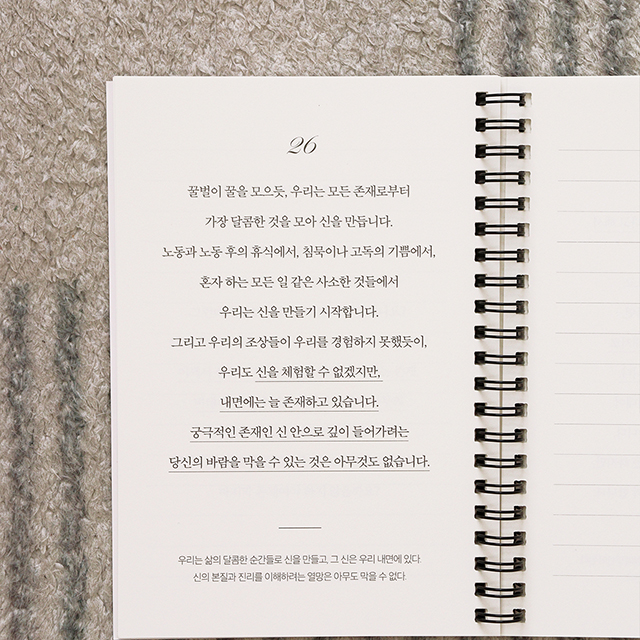 26
꿀벌이 꿀을 모으듯, 우리는 모든 존재로부터
가장 달콤한 것을 모아 신을 만듭니다.
노동과 노동 후의 휴식에서, 침묵이나 고독의 기쁨에서,
혼자 하는 모든 일 같은 사소한 것들에서
우리는 신을 만들기 시작합니다.
그리고 우리의 조상들이 우리를 경험하지 못했듯이,
우리도 신을 체험할 수 없겠지만,
내면에는 늘 존재하고 있습니다.
궁극적인 존재인 신 안으로 깊이 들어가려는
당신의 바람을 막을 수 있는 것은 아무것도 없습니다.
우리는 삶의 달콤한 순간들로 신을 만들고, 그 신은 우리 내면에 있다.
신의 본질과 진리를 이해하려는 열망은 아무도 막을 수 없다.